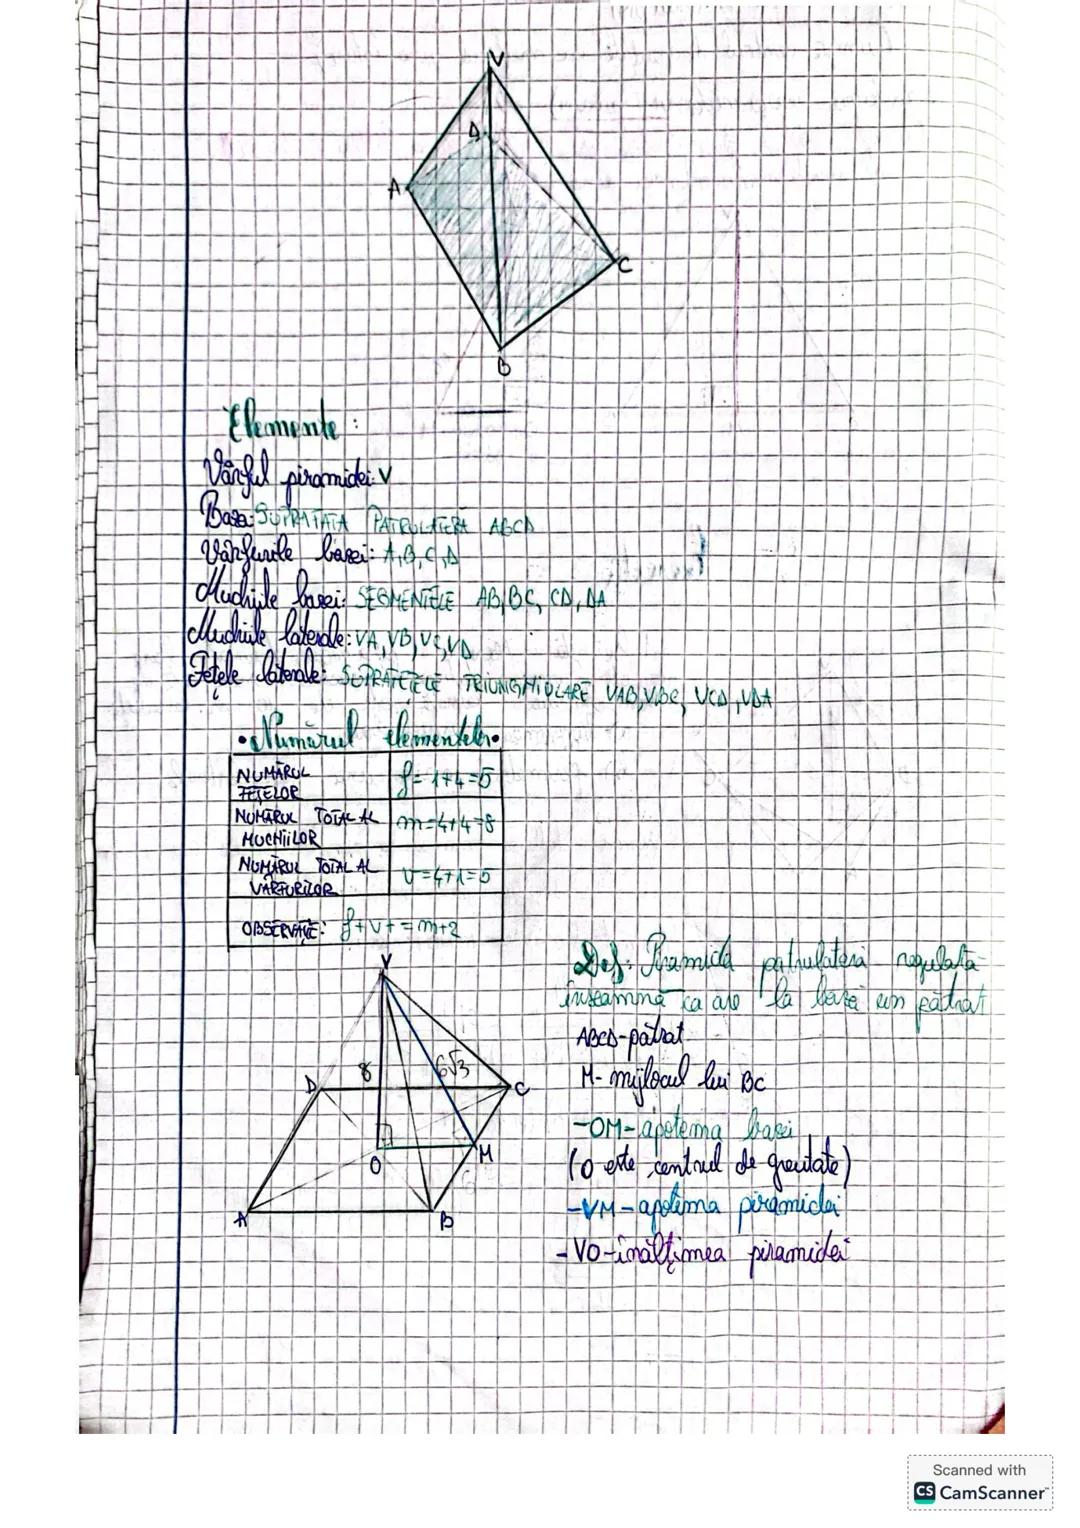 V
D
A
C
B
Elemente:
Vârful piramidei: V
Baza: SUPRAFAȚA PATRULATERĂ ABCD
Vârfurile bazei: A,B,C,D
Muchiile bazei: SEGMENTELE AB,BC, CD, DA
Muchiile laterale: VA,VB,VC,VD
Fețele laterale: SUPRAFEȚELE TRIUNGHIULARE VAB,VBC, VCD, VDA
• Numărul elementelor •
NUMĂRUL FEȚELOR f=1+4=5
NUMĂRUL TOTAL AL MUCHIILOR m=4+4=8
NUMĂRUL TOTAL AL VÂRFURILOR v=4+1=5
OBSERVAȚIE: f+v+=m+2
V
8
6√3
D
C
O
M
6
A
B
Def: Piramidă patrulateră regulată
înseamnă ca are la bază un pătrat
ABCD-pătrat
M- mijlocul lui BC
-OM- apotema bazei
(O este centrul de greutate)
-VM- apotema piramidei
- VO-înălțimea piramidei
Scanned with
CS CamScanner